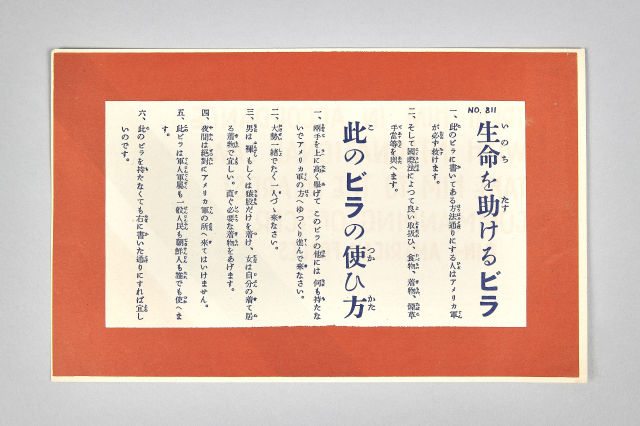 NO. 811
生命を助けるビラ
一、此のビラに書いてある方法通りにする人はアメリカ軍
が必ず救けます。
二、そして國際法によつて良い取扱ひ、食物、着物、煙草
手當等を與へます。
此のビラの使ひ方
一、兩手を上に高く擧げて このビラの他には 何も持たな
いでアメリカ軍の方へゆつくり進んで來なさい。
二、大勢一緒でたく一人づゝ來なさい。
三、男は褌もしくは猿股だけを着け、女は自分の着て居
る着物で宜しい。直ぐ必要な着物をあげます。
四、夜間は絕對にアメリカ軍の所へ來てはいけません。
五、此ビラは軍人軍屬も一般人民も朝鮮人も誰でも使へま
す。
六、此のビラを持たなくても右に書いた通りにすれば宜し
いのです。